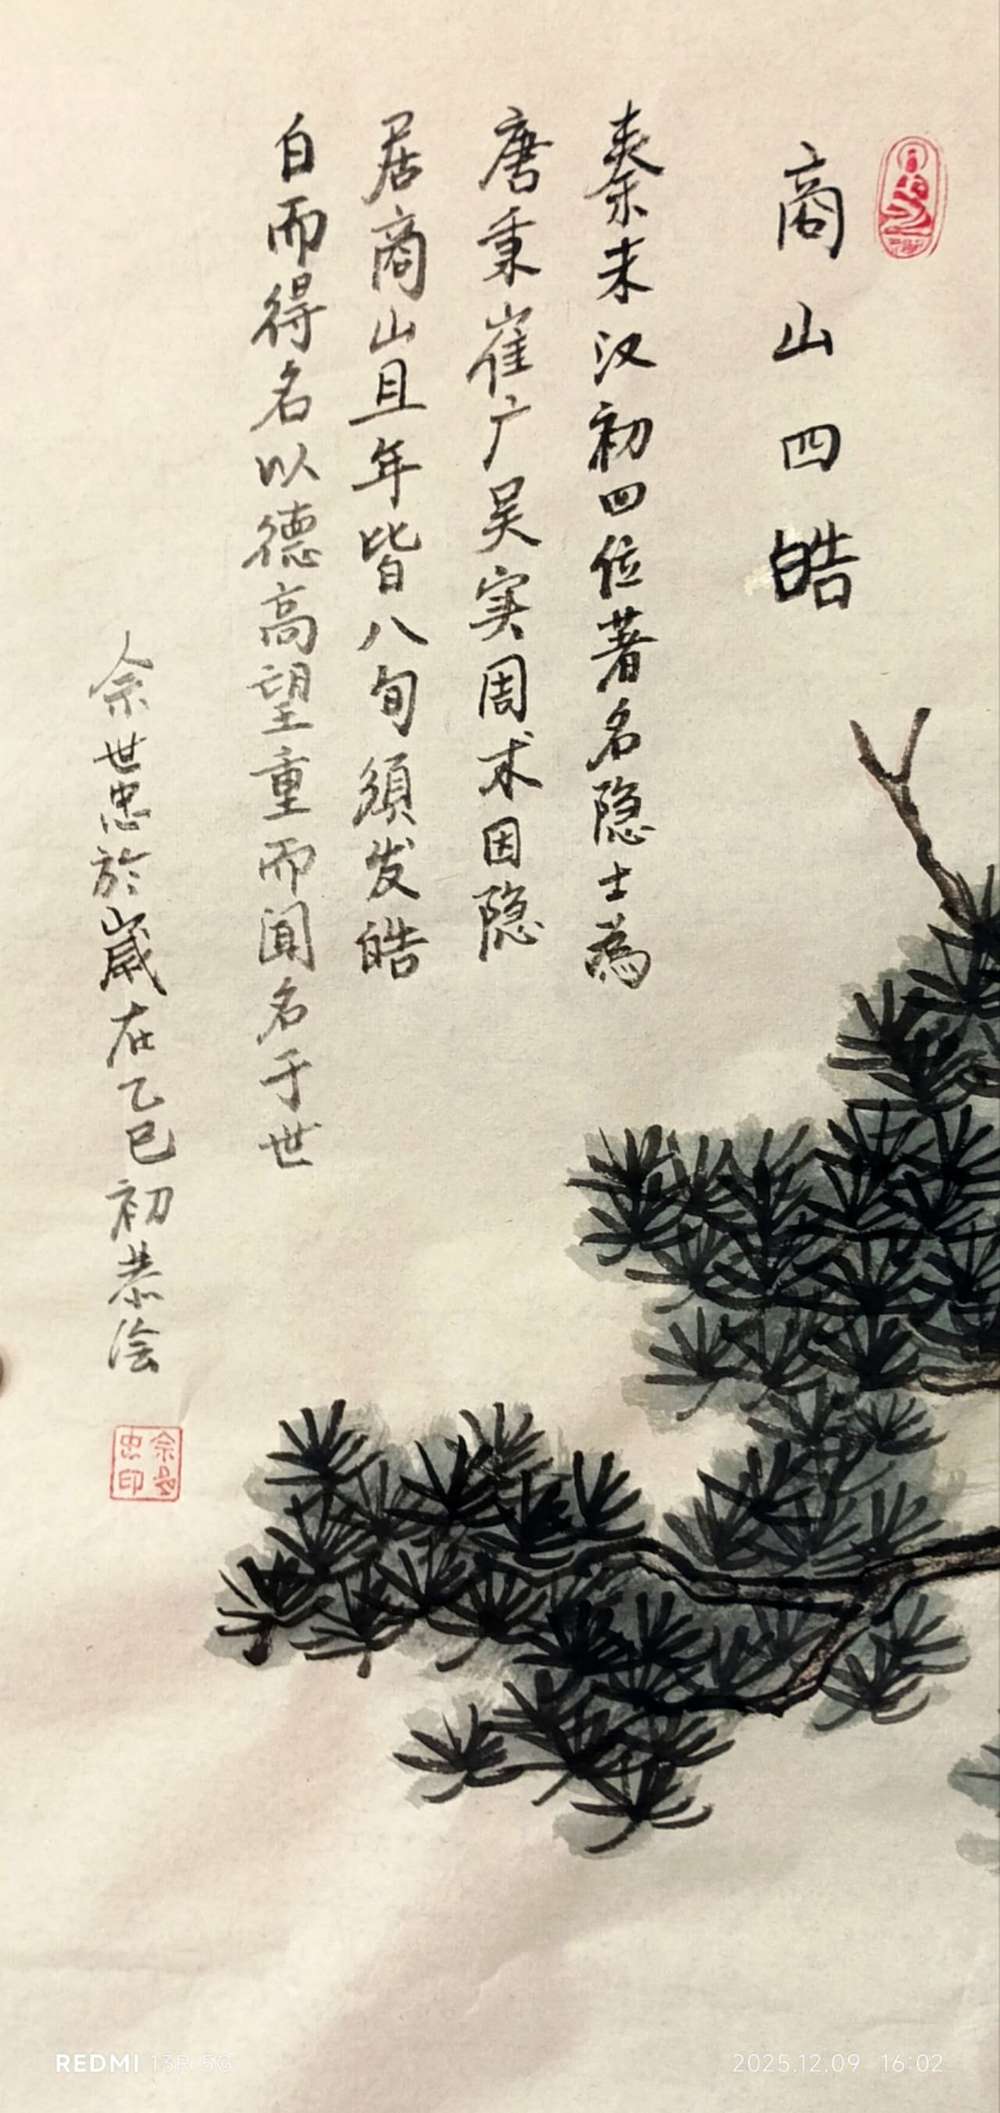 商山四皓
秦末汉初四位著名隐士為
唐秉崔广吴实周术因隐
居商山且年皆八旬須发皓
白而得名以德高望重而闻名于世
佘世忠於歲在乙巳初恭绘
REDMI 13R 5G
2025.12.09 16:02